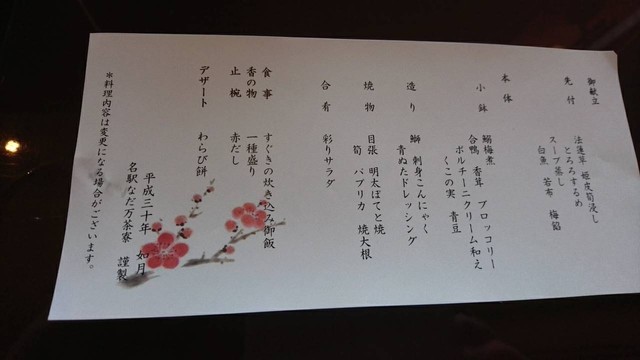 御献立
先付 法蓮草 姫皮筍浸し
とろろするめ
スープ蒸し
白魚 若布 梅餡
本体
小鉢 鰯梅煮
合鴨 香茸 ブロッコリー
ポルチーニクリーム和え
くこの実 青豆
造り 鰤 刺身こんにゃく
青ぬたドレッシング
焼物 目張 明太ぽてと焼
筍 パプリカ 焼大根
合肴 彩りサラダ
食事 すぐきの炊き込み御飯
香の物 一種盛り
止椀 赤だし
デザート わらび餅
平成三十年 如月
名駅なだ万茶寮 謹製
*料理内容は変更になる場合がございます。